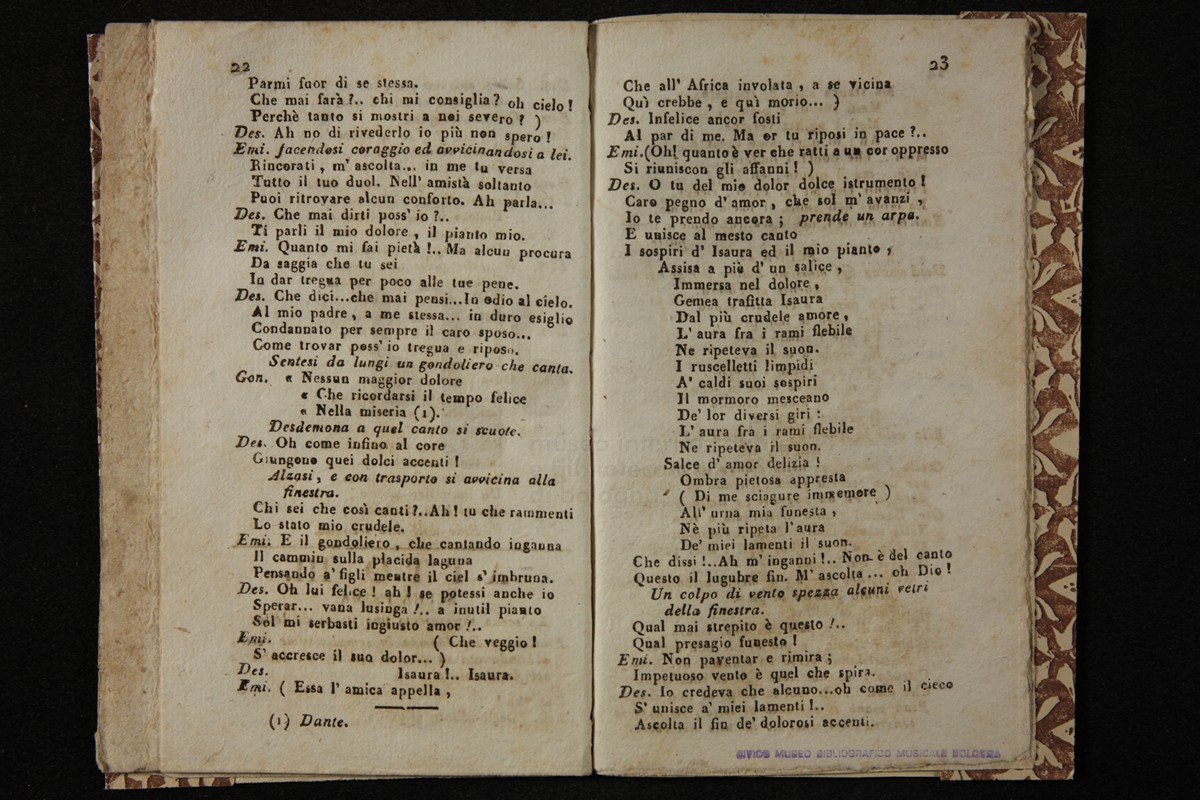 22
Parmi fuor di se stessa.
Che mai farà ?.. chi mi consiglia? oh cielo !
Perchè tanto si mostri a noi severo ? )
Des. Ah no di rivederlo io più non spero !
Emi. facendosi coraggio ed avvicinandosi a lei.
Rincorati , m' ascolta... in me tu versa
Tutto il tuo duol. Nell' amistà soltanto
Puoi ritrovare alcun conforto. Ah parla...
Des. Che mai dirti poss' io ?..
Ti parli il mio dolore , il pianto mio.
Emi. Quanto mi fai pietà !.. Ma alcun procura
Da saggia che tu sei
In dar tregua per poco alle tue pene.
Des. Che dici...che mai pensi...In odio al cielo.
Al mio padre , a me stessa... in duro esiglio
Condannato per sempre il caro sposo...
Come trovar poss' io tregua e riposo.
Sentesi da lungi un gondoliero che canta.
Gon. « Nessun maggior dolore
« Che ricordarsi il tempo felice
« Nella miseria (1).
Desdemona a quel canto si scuote.
Des. Oh come infino al core
Giungono quei dolci accenti !
Alzasi , e con trasporto si avvicina alla
finestra.
Chi sei che così canti ?..Ah ! tu che rammenti
Lo stato mio crudele.
Emi. E il gondoliero , che cantando inganna
Il cammin sulla placida laguna
Pensando a' figli mentre il ciel s' imbruna.
Des. Oh lui felice ! ah ! se potessi anche io
Sperar... vana lusinga !.. a inutil pianto
Sol mi serbasti ingiusto amor !..
Emi. ( Che veggio !
S' accresce il suo dolor... )
Des. Isaura !.. Isaura.
Emi. ( Essa l' amica appella ,
(1) Dante.
23
Che all' Africa involata , a se vicina
Quì crebbe , e quì morio... )
Des. Infelice ancor fosti
Al par di me. Ma or tu riposi in pace ?..
Emi.(Oh! quanto è ver che ratti a un cor oppresso
Si riuniscon gli affanni ! )
Des. O tu del mio dolor dolce istrumento !
Caro pegno d' amor , che sol m' avanzi ,
Io te prendo ancora ; prende un arpa.
E unisce al mesto canto
I sospiri d' Isaura ed il mio pianto ,
Assisa a piè d' un salice ,
Immersa nel dolore ,
Gemea trafitta Isaura
Dal più crudele amore ,
L' aura fra i rami flebile
Ne ripeteva il suon.
I ruscelletti limpidi
A' caldi suoi sospiri
Il mormoro mesceano
De' lor diversi giri :
L' aura fra i rami flebile
Ne ripeteva il suon.
Salce d' amor delizia !
Ombra pietosa appresta
( Di me sciagure immemore )
All' urna mia funesta ,
Nè più ripeta l' aura
De' miei lamenti il suon.
Che dissi !..Ah m' inganni !.. Non è del canto
Questo il lugubre fin. M' ascolta ... oh Dio !
Un colpo di vento spezza alcuni vetri
della finestra.
Qual mai strepito è questo !..
Qual presagio funesto !
Emi. Non paventar e rimira ;
Impetuoso vento è quel che spira.
Des. Io credeva che alcuno...oh come il cieco
S' unisce a' miei lamenti !..
Ascolta il fin de' dolorosi accenti.
CIVICO MUSEO BIBLIOGRAFICO MUSICALE BOLOGNA